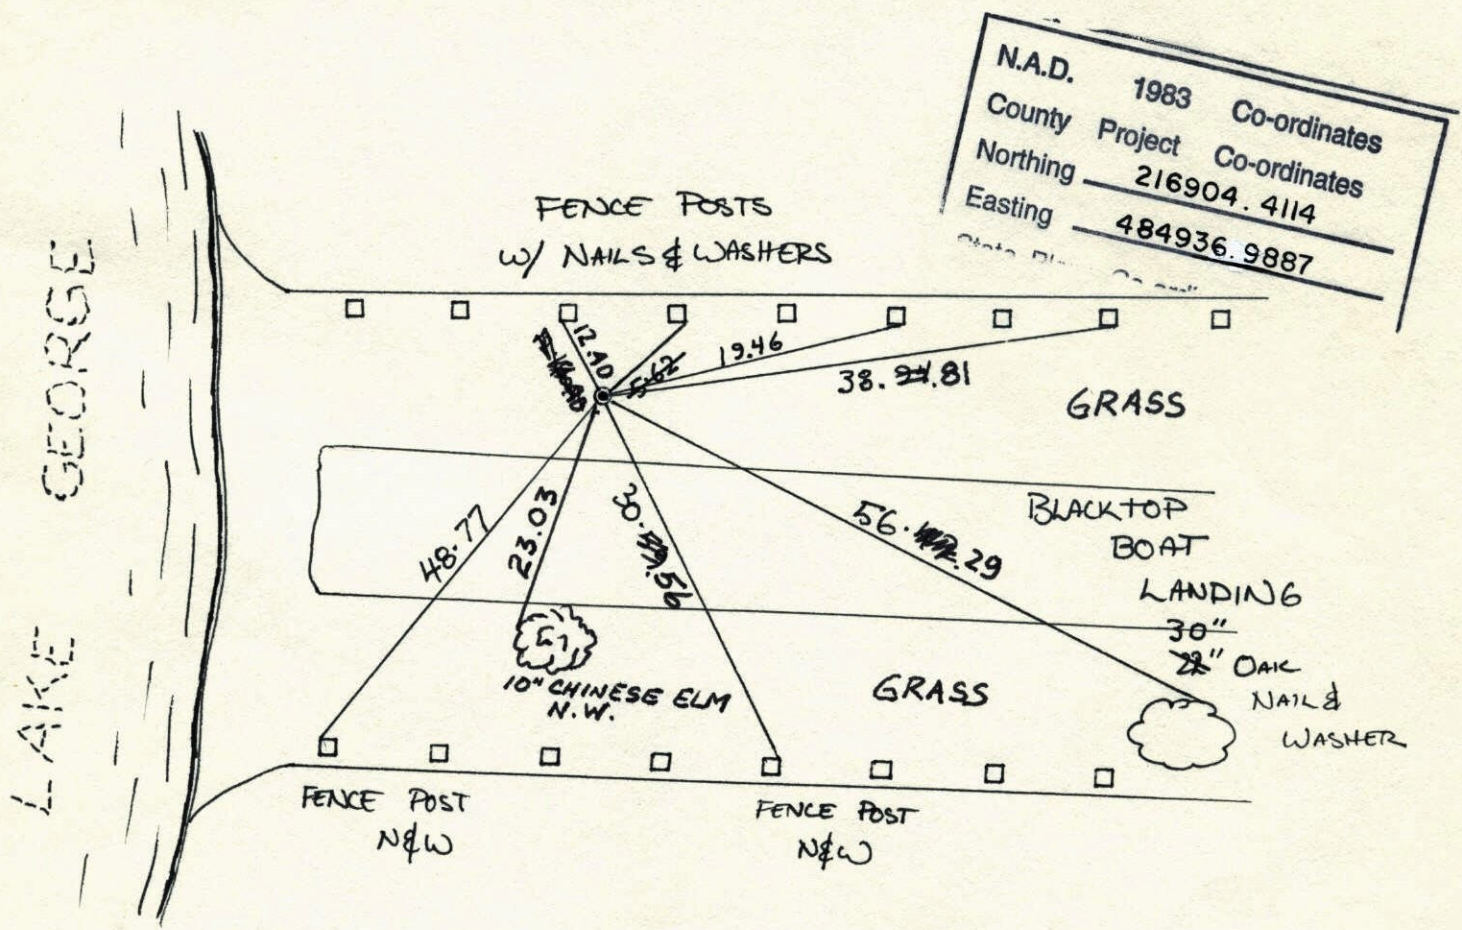 N.A.D. 1983 Co-ordinates
County Project Co-ordinates
Northing 216904.4114
Easting 484936.9887
FENCE POSTS
W/ NAILS & WASHERS
12.40
5.62
19.46
38. .81
GRASS
LAKE GEORGE
48.77
23.03
30. .56
56. .29
BLACKTOP
BOAT
LANDING
30"
22" OAK
NAIL &
WASHER
10" CHINESE ELM
N.W.
GRASS
FENCE POST
N&W
FENCE POST
N&W